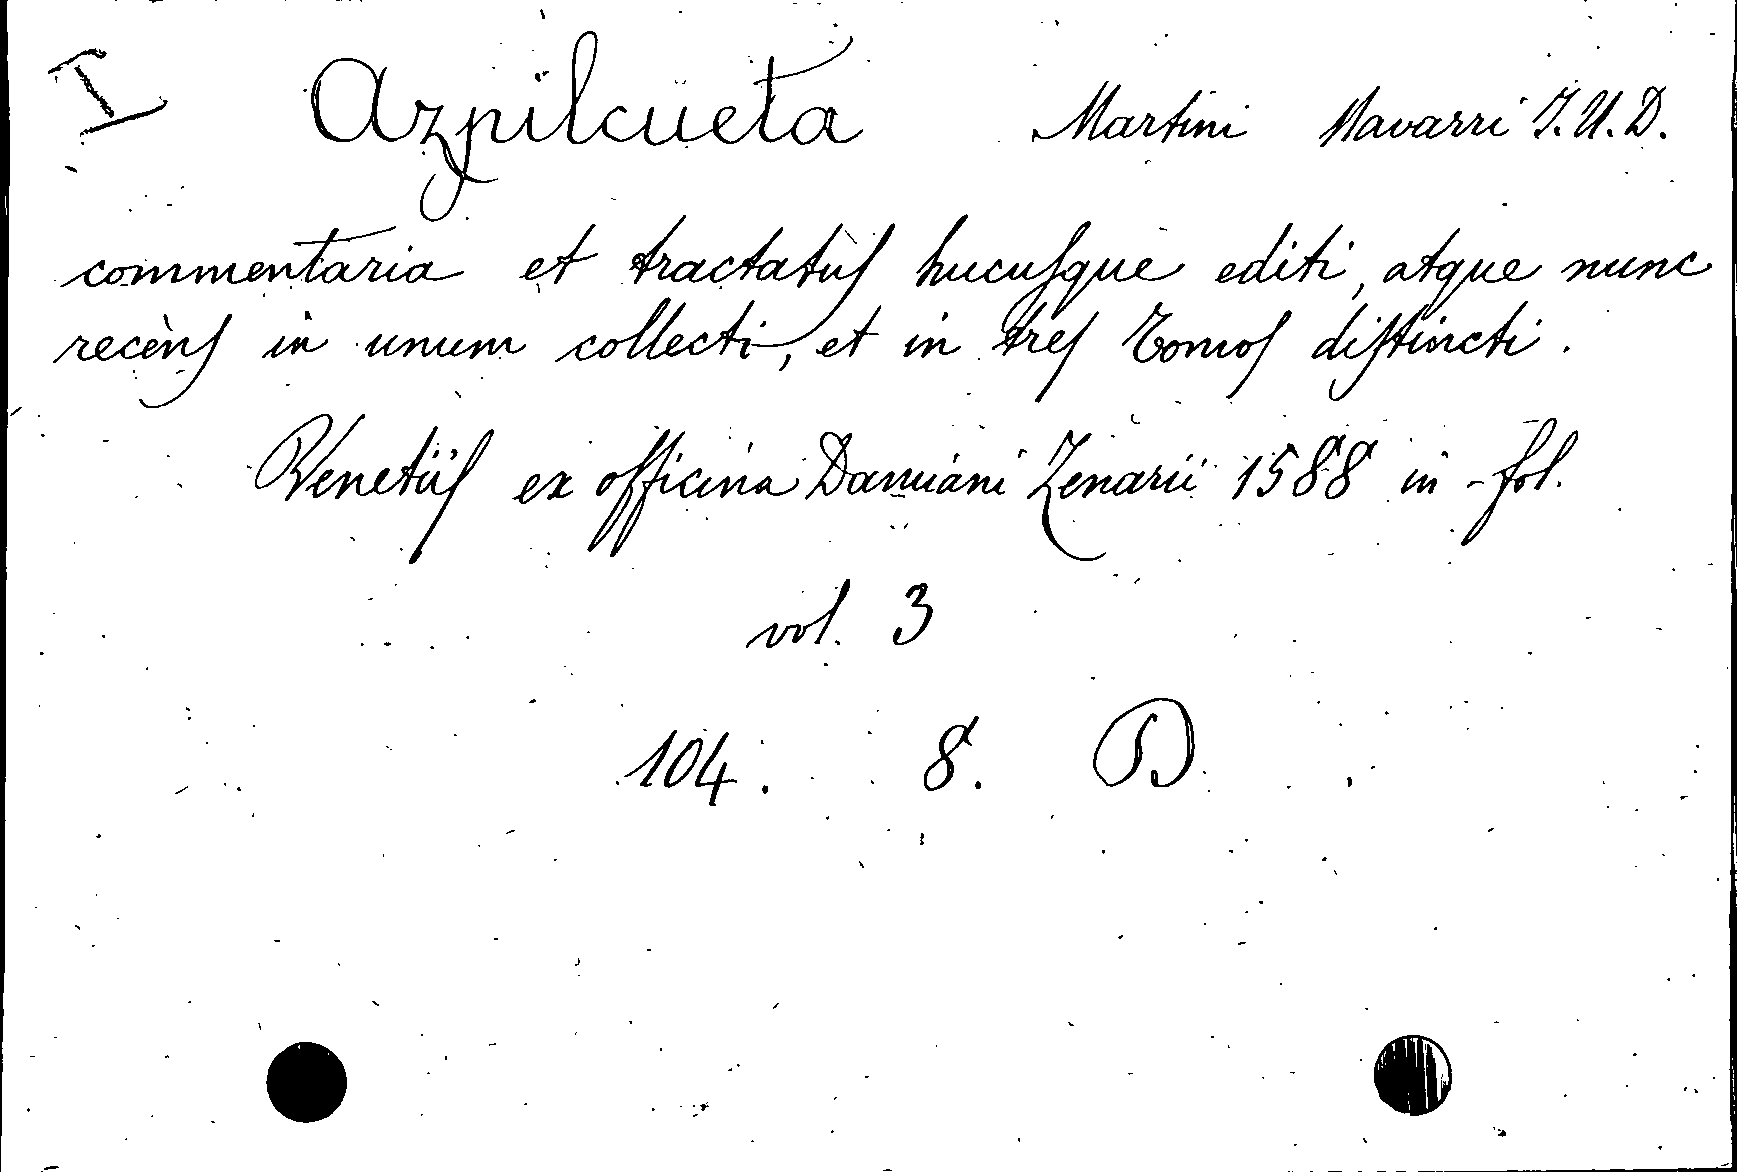 I Azpilcueta Martini Navarri J. U. D.
commentaria et tractatuſ hucuſque editi, atque nunc
recènſ in unum collecti, et in treſ Tomoſ diſtincti.
Venetiiſ ex officina Damiani Zenarii 1588 in-fol.
vol. 3
104. 8. D